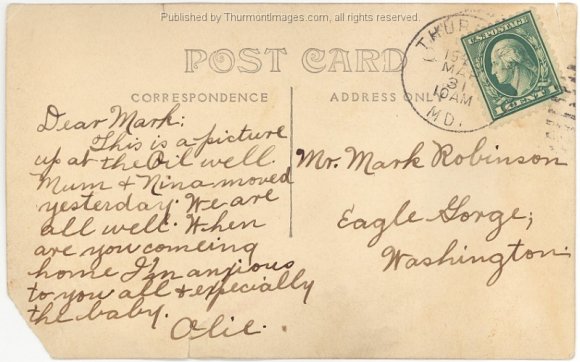 Published by ThurmontImages.com, all rights reserved.
POST CARD
CORRESPONDENCE
ADDRESS ONLY
MAR
31
10 AM
MD.
U.S. POSTAGE
1 CENT 1
Dear Mark:
This is a picture
up at the Oil well.
Mum & Nina moved
yesterday. We are
all well. When
are you comeing
home I'm anxious
to you all & especially
the baby.
Olie.
Mr. Mark Robinson
Eagle Gorge,
Washington.